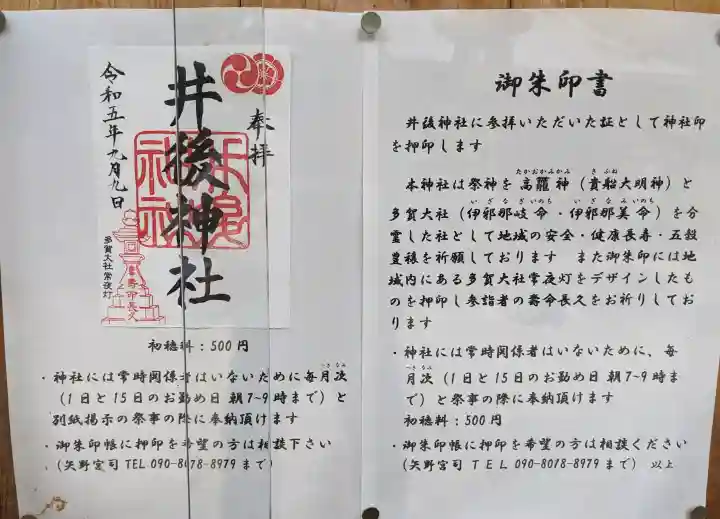 奉拝
井後神社
令和五年九月九日
多賀大社常夜灯
初穂料：500円
・神社には常時関係者はいないために毎月次
つきなみ
（1日と15日のお勤め日 朝7~9時まで）と
別紙掲示の祭事の際に奉納頂けます
・御朱印帳に押印を希望の方は相談下さい
（矢野宮司 TEL 090-8078-8979 まで）
御朱印書
井後神社に参拝いただいた証として神社印
を押印します
たかおかみかみ きぶね
本神社は祭神を高龗神（貴船大明神）と
いざなぎいのち いざなみいのち
多賀大社（伊邪那岐命・伊邪那美命）を分
霊した社として地域の安全・健康長寿・五穀
豊穣を祈願しております また御朱印には地
域内にある多賀大社常夜灯をデザインしたも
のを押印し参詣者の壽命長久をお祈りしてお
ります
・神社には常時関係者はいないために、毎
つきなみ
月次（1日と15日のお勤め日 朝7~9時ま
で）と祭事の際に奉納頂けます
初穂料：500円
・御朱印帳に押印を希望の方は相談ください
（矢野宮司 TEL 090-8078-8979 まで） 以上